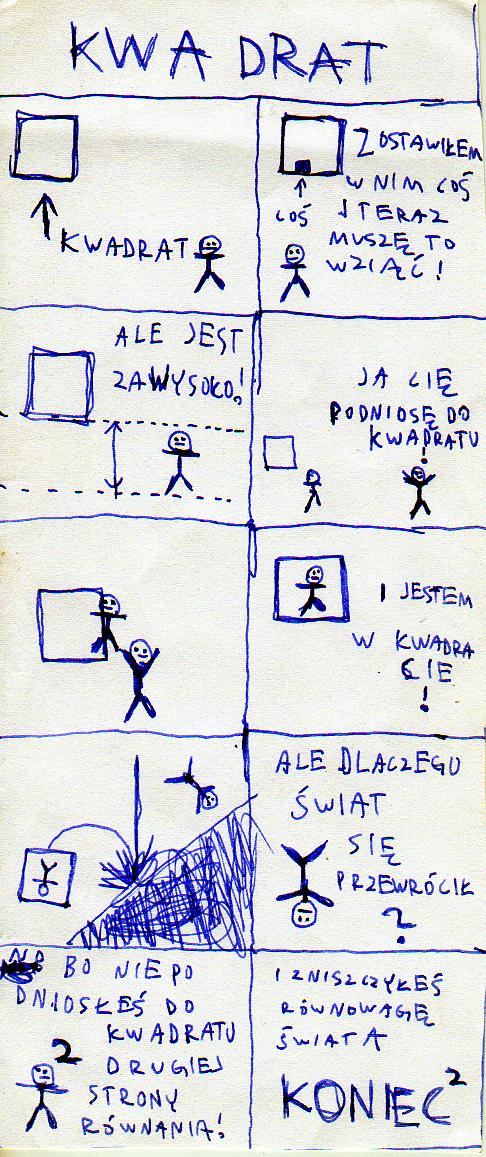 KWADRAT
KWADRAT
ZOSTAWIŁEM
W NIM COŚ
COŚ
I TERAZ
MUSZĘ TO
WZIĄĆ!
ALE JEST
ZA WYSOKO!
JA CIĘ
PODNIOSĘ DO
KWADRATU
!
I JESTEM
W KWADRA
CIE
!
ALE DLACZEGO
ŚWIAT
SIĘ
PRZEWRÓCIŁ
?
BO NIE PO
DNIOSŁEŚ DO
KWADRATU
2
DRUGIEJ
STRONY
RÓWNANIA!
I ZNISZCZYŁEŚ
RÓWNOWAGĘ
ŚWIATA
KONIEC²